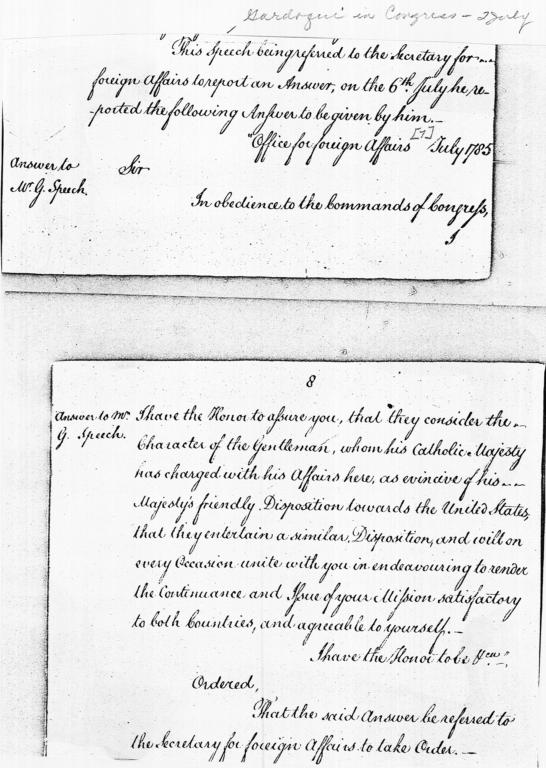 Gardoqui in Congress – 2 July
"This Speech being referred to the Secretary for --
foreign Affairs to report an Answer, on the 6th July he re-
-ported the following Answer to be given by him.—
"Office for foreign Affairs [1] July 1785
Answer to
Mr G. Speech.
Sir
In obedience to the Commands of Congress,
I
8
Answer to Mr
G. Speech.
I have the Honor to assure you, that they consider the --
Character of the Gentleman, whom his Catholic Majesty
has charged with his Affairs here, as evincive of his --
Majesty's friendly Disposition towards the United States,
that they entertain a similar Disposition, and will on
every Occasion unite with you in endeavouring to render
the Continuance and Issue of your Mission satisfactory
to both Countries, and agreeable to yourself.—
I have the Honor to be &ca".
Ordered,
That the said Answer be referred to
the Secretary for foreign Affairs to take Order.—